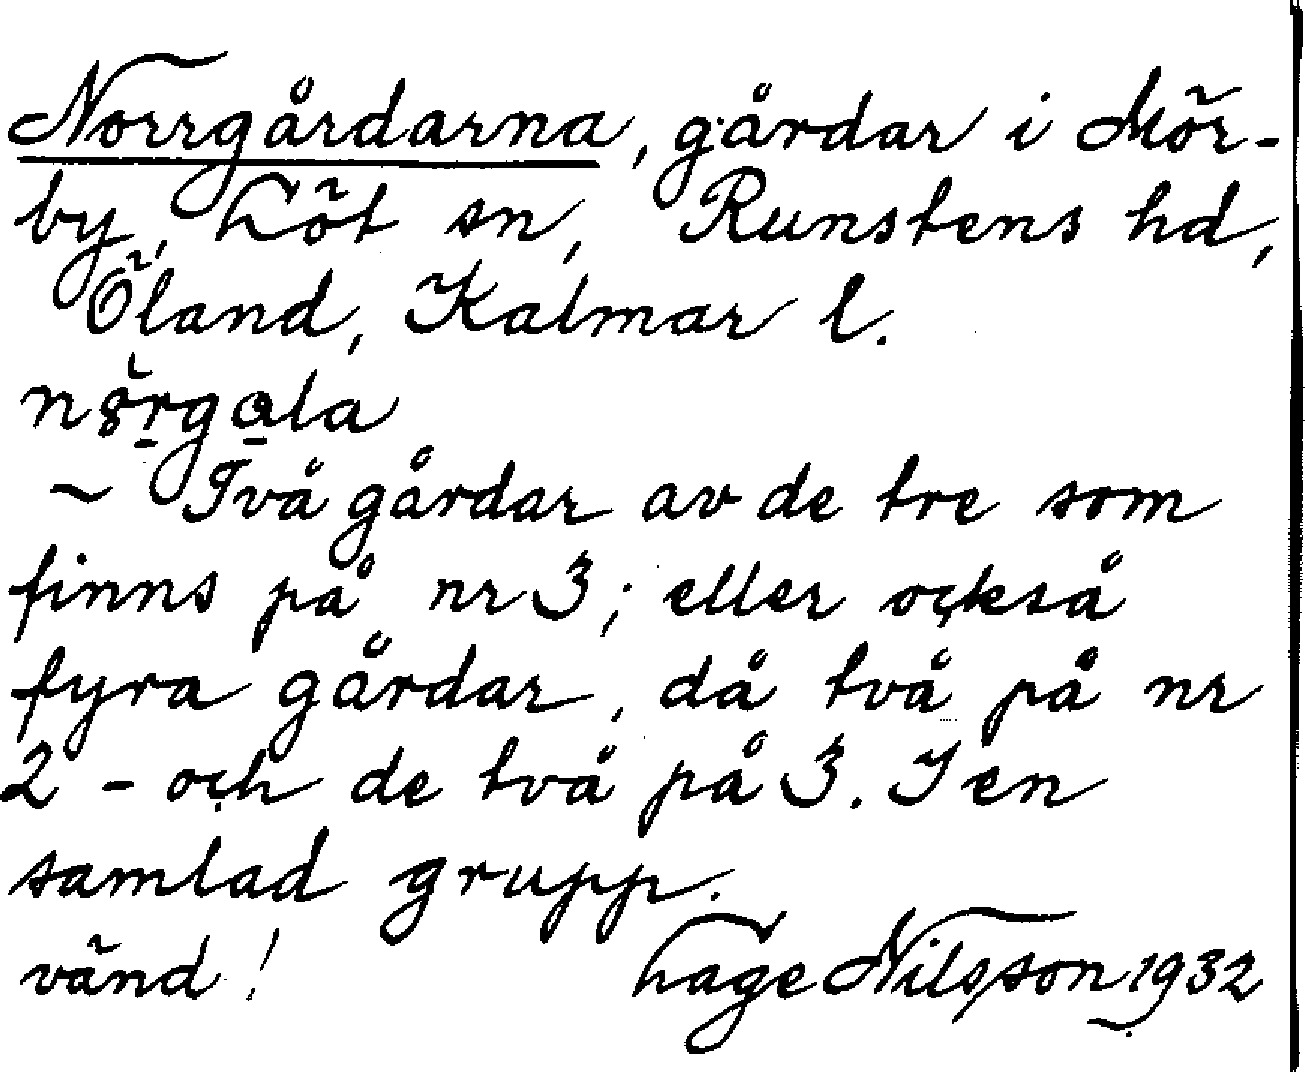 Norrgårdarna, gårdar i Mör-
by, Löt sn, Runstens hd,
Öland, Kalmar l.
– Två gårdar av de tre som
finns på nr 3; eller också
fyra gårdar, då två på nr
2 – och de två på 3. I en
samlad grupp.
vänd! Lage Nilsson 1932